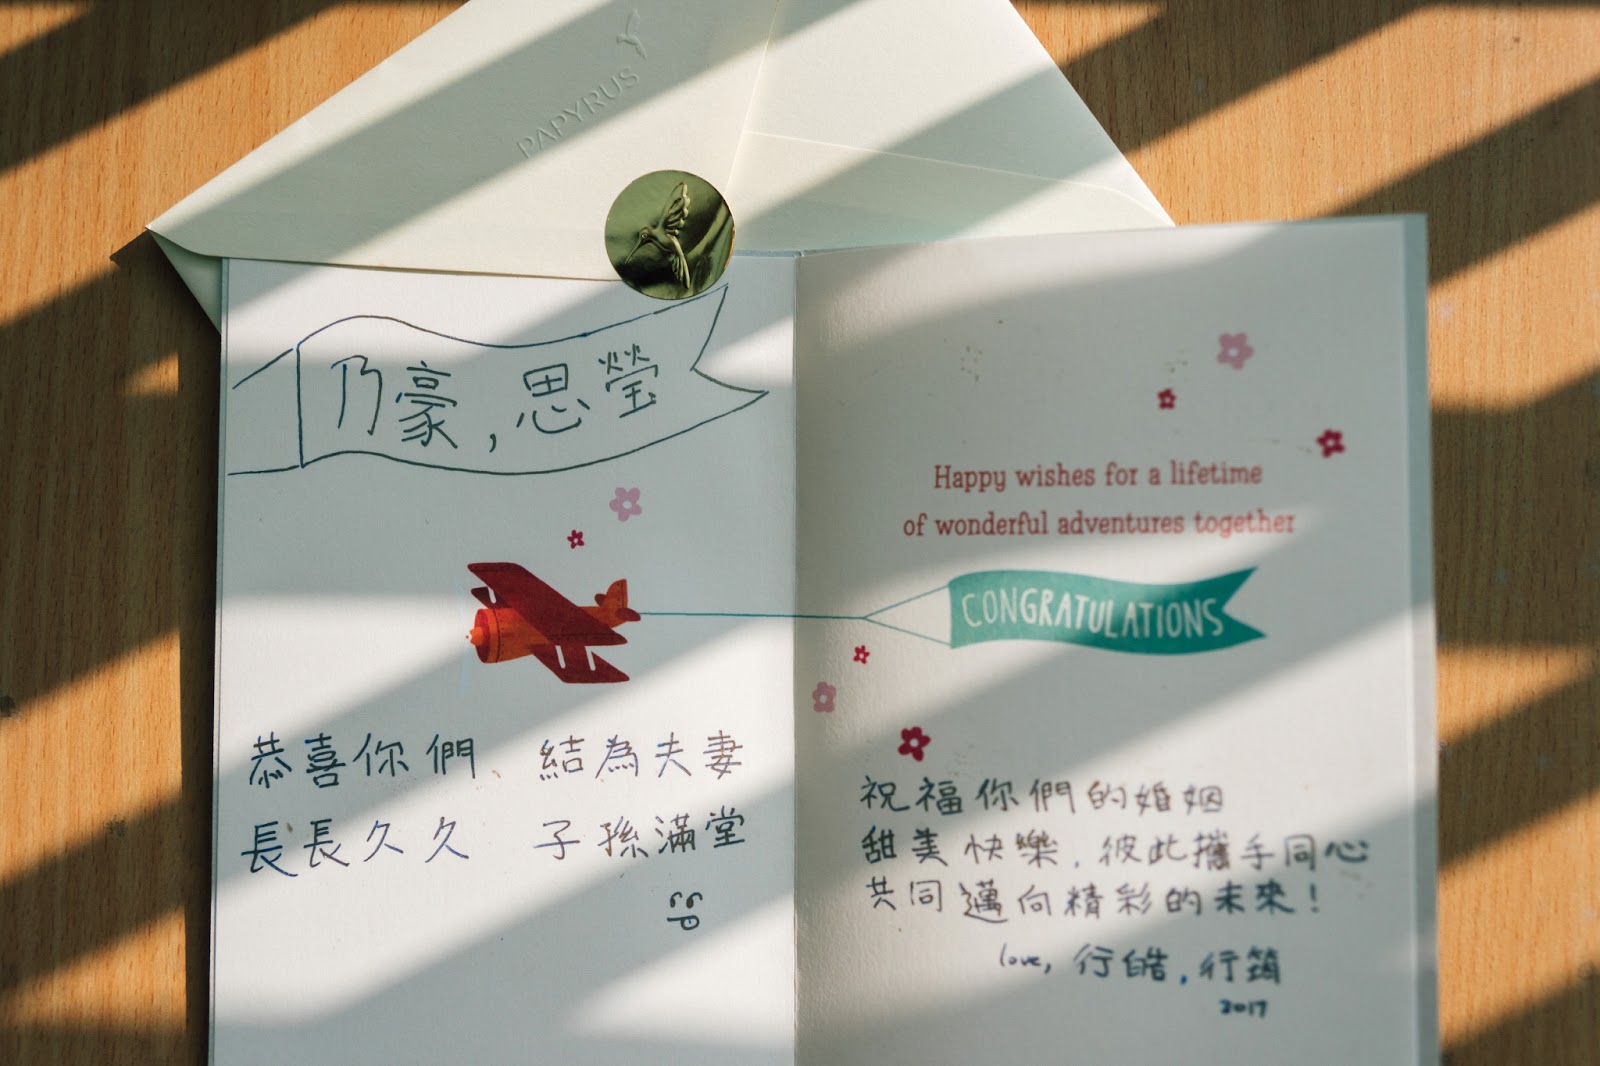 PAPYRUS
乃豪,思瑩
恭喜你們、結為夫妻
長長久久 子孫滿堂
Happy wishes for a lifetime
of wonderful adventures together
CONGRATULATIONS
祝福你們的婚姻
甜美快樂,彼此攜手同心
共同邁向精彩的未來!
love, 行皓,行筠
2017